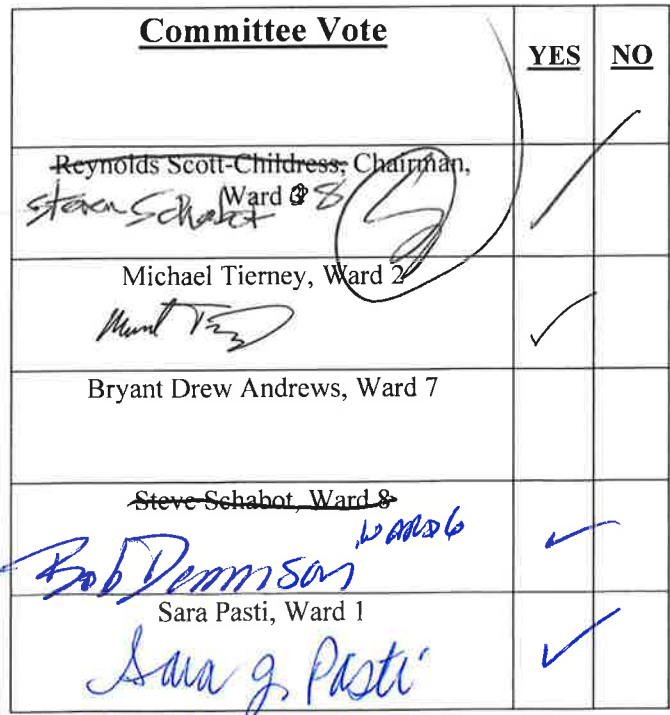 Committee Vote
YES NO
Reynolds Scott-Childress, Chairman,
Ward 3 8
Steven Schabot
Michael Tierney, Ward 2
Bryant Drew Andrews, Ward 7
Steve Schabot, Ward 8
WARD 6
Bob Dennison
Sara Pasti, Ward 1
Sara J. Pasti